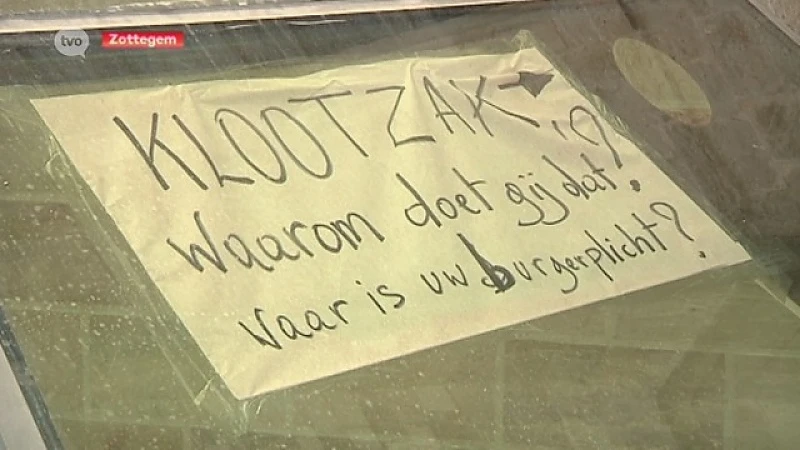 tvo Zottegem
KLOOTZAK
Waarom doet gij dat?
Waar is uw burgerplicht?